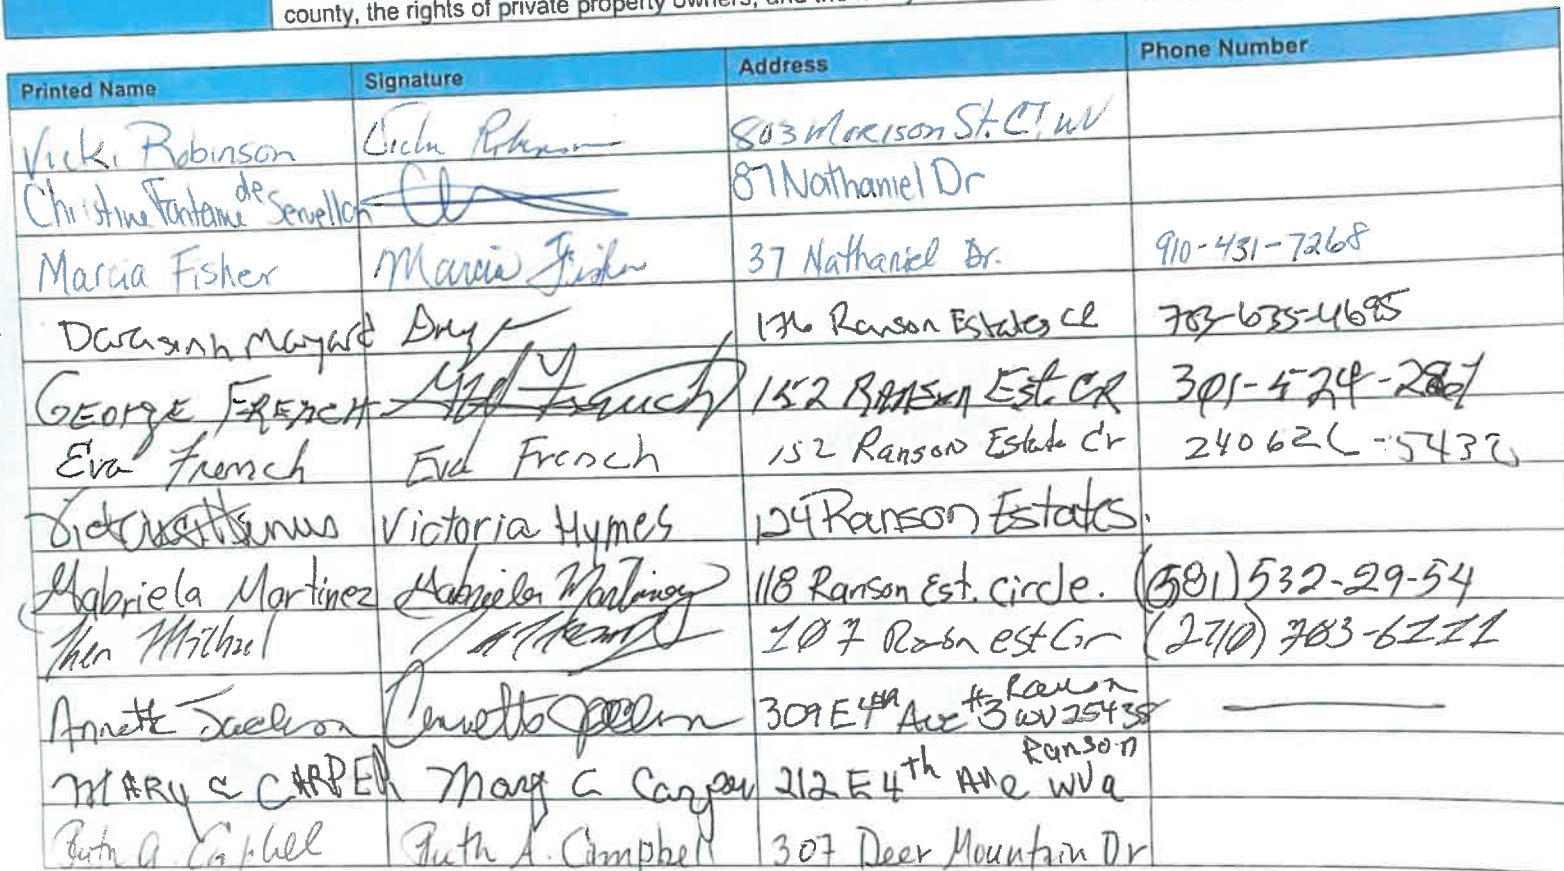 county, the rights of private property owners, and the
Printed Name Signature Address Phone Number
Vicki Robinson Vicki Robinson 803 Morison St. CT. WV
Christine Fontaine de Servellon 87 Nathaniel Dr
Marcia Fisher Marcia Fisher 37 Nathaniel Dr. 910-431-7268
176 Ranson Estates Cl 703-635-4695
GEORGE FRENCH 152 RANSON Est. CR 301-524-
Eva French Eva French 152 Ranson Estate Cr 240 62
Victoria Hymes 124 Ranson Estates.
Gabriela Martinez Gabriela Martinez 118 Ranson Est. circle. (681) 532-29-54
107 est Cir 703-6111
Annette Jackson Annette Jackson 309 E 4th Ave #3 Ranson WV 25438
MARY C CARPER Mary C Carper 212 E 4th Ave Ranson WVa
Ruth A. Campbell Ruth A. Campbell 307 Deer Mountain Dr